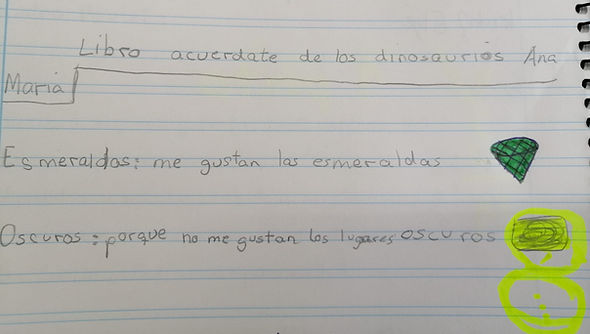 Libro acuerdate de los dinosaurios Ana
Maria
Esmeraldas: me gustan las esmeraldas
Oscuros: porque no me gustan los lugares oscuros